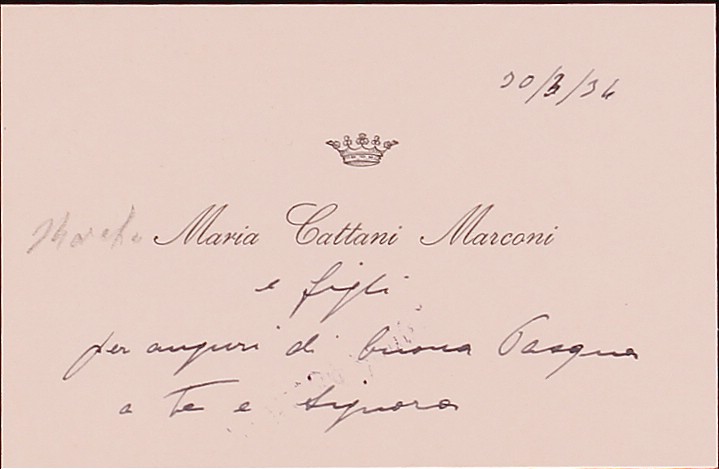 30/3/34
Maria Cattani Marconi
e figli
per auguri di buona Pasqua
a Te e Signora